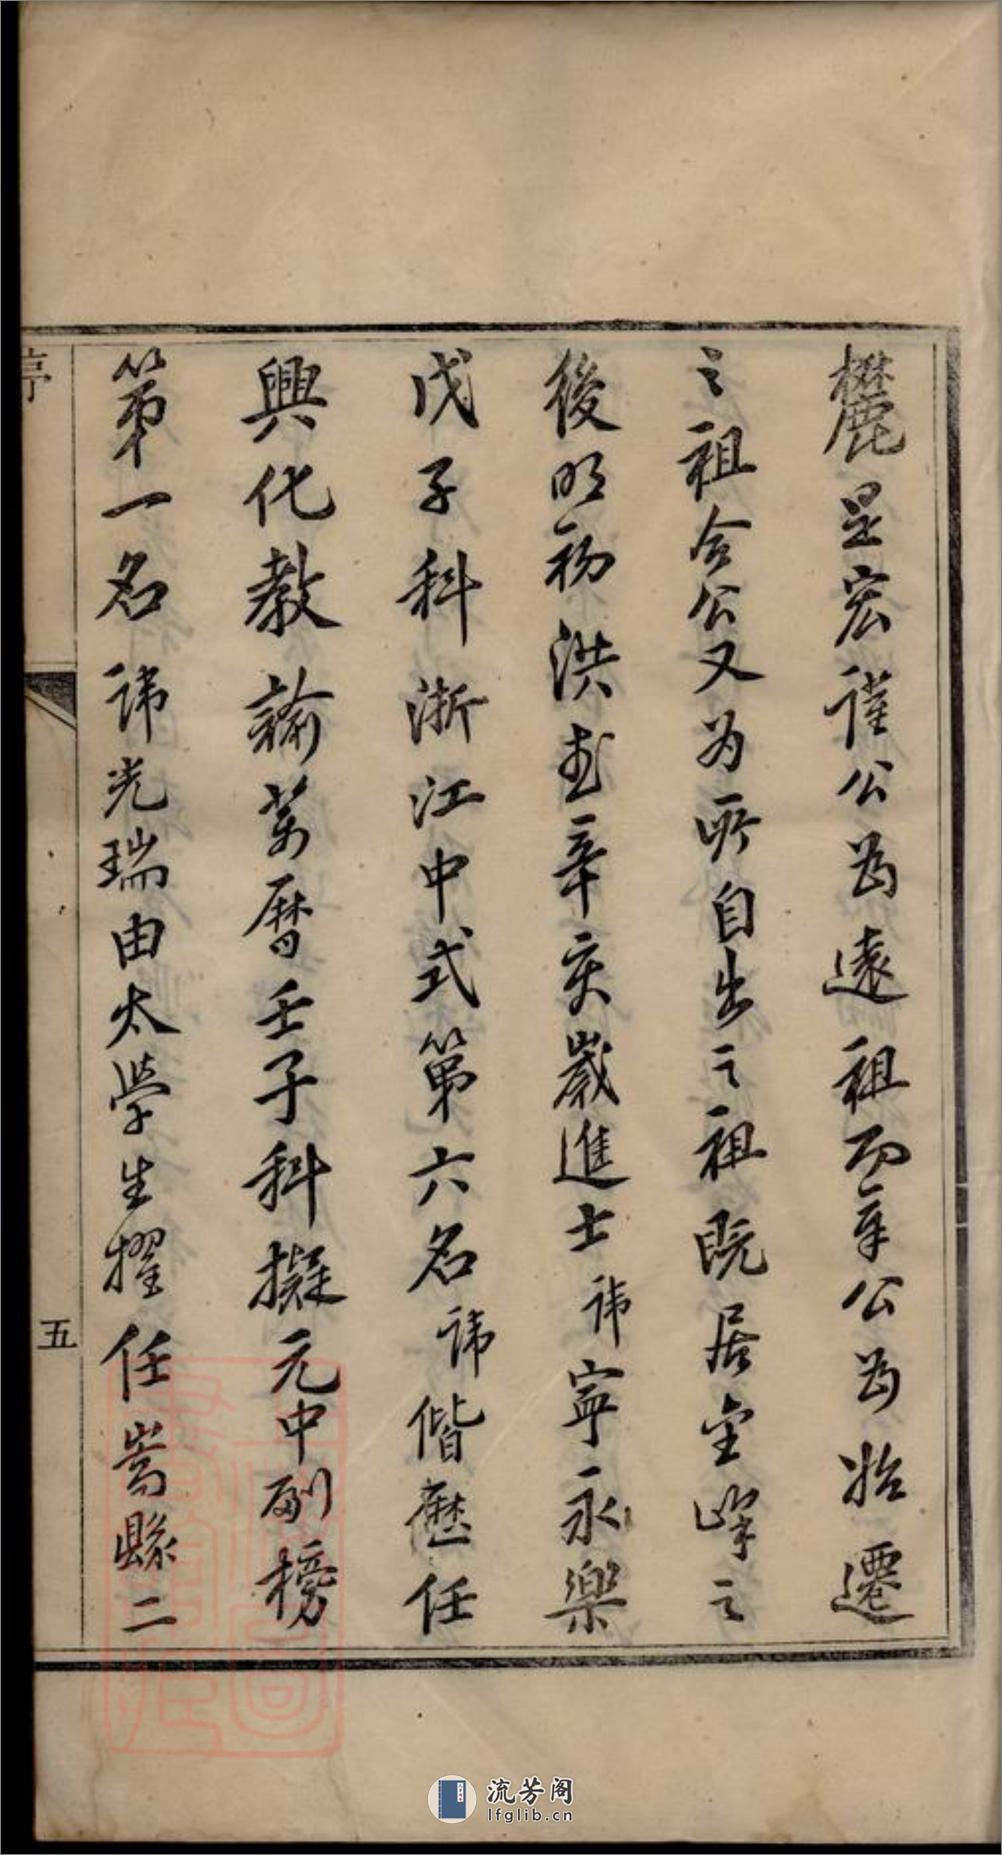 麓是宏謹公為遠祖而章公為始遷
之祖合公又為所自出之祖既居金峰之
後明初洪武辛亥歲進士諱寧永樂
戊子科浙江中式第六名諱偕歷任
興化教諭萬曆壬子科擬元中副榜
第一名諱光瑞由太學生擢任嵩縣二
五
流芳阁
lfglib.cn